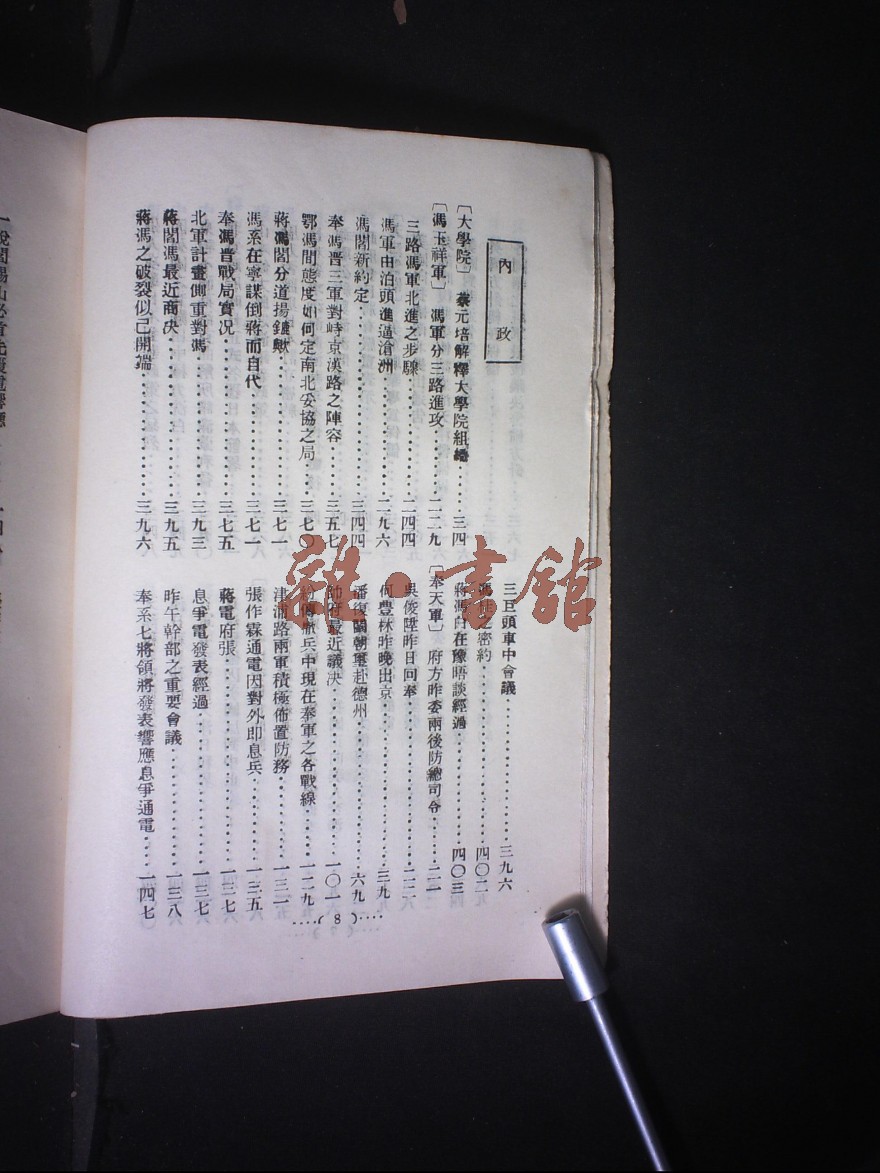 內政
〔大學院〕 蔡元培解釋大學院組織……三四
〔馮玉祥軍〕 馮軍分三路進攻……二二九
三路馮軍北進之步驟……二四四
馮軍由泊頭進逼滄洲……二九六
馮閻新約定……三四四
奉馮晋三軍對峙京漢路之陣容……三五七
鄂馮間態度如何定南北妥協之局……三七〇
蔣馮閻分道揚鑣歟……三七一
馮系在寧謀倒蔣而自代……三七一
奉馮晋戰局實况……三七五
北軍計畫側重對馮……三九三
蔣閻馮最近商决……三九五
蔣馮之破裂似已開端……三九六
三巨頭車中會議……三九六
密約……四〇二
蔣馮白在豫晤談經過……四〇三
〔奉天軍〕 府方昨委兩後防總司令……二一
吳俊陞昨日回奉……二二
何豐林昨晚出京……三九
潘復關朝璽赴德州……六九
帥府最近議決……一〇一
紛傳撤兵中現在奉軍之各戰線……一二九
津浦路兩軍積極佈置防務……一三一
張作霖通電因對外卽息兵……一三五
蔣電府張……一三七
息爭電發表經過……一三七
昨午幹部之重要會議……一三八
奉系七將領將發表響應息爭通電……一四七
(8)
雜·書館